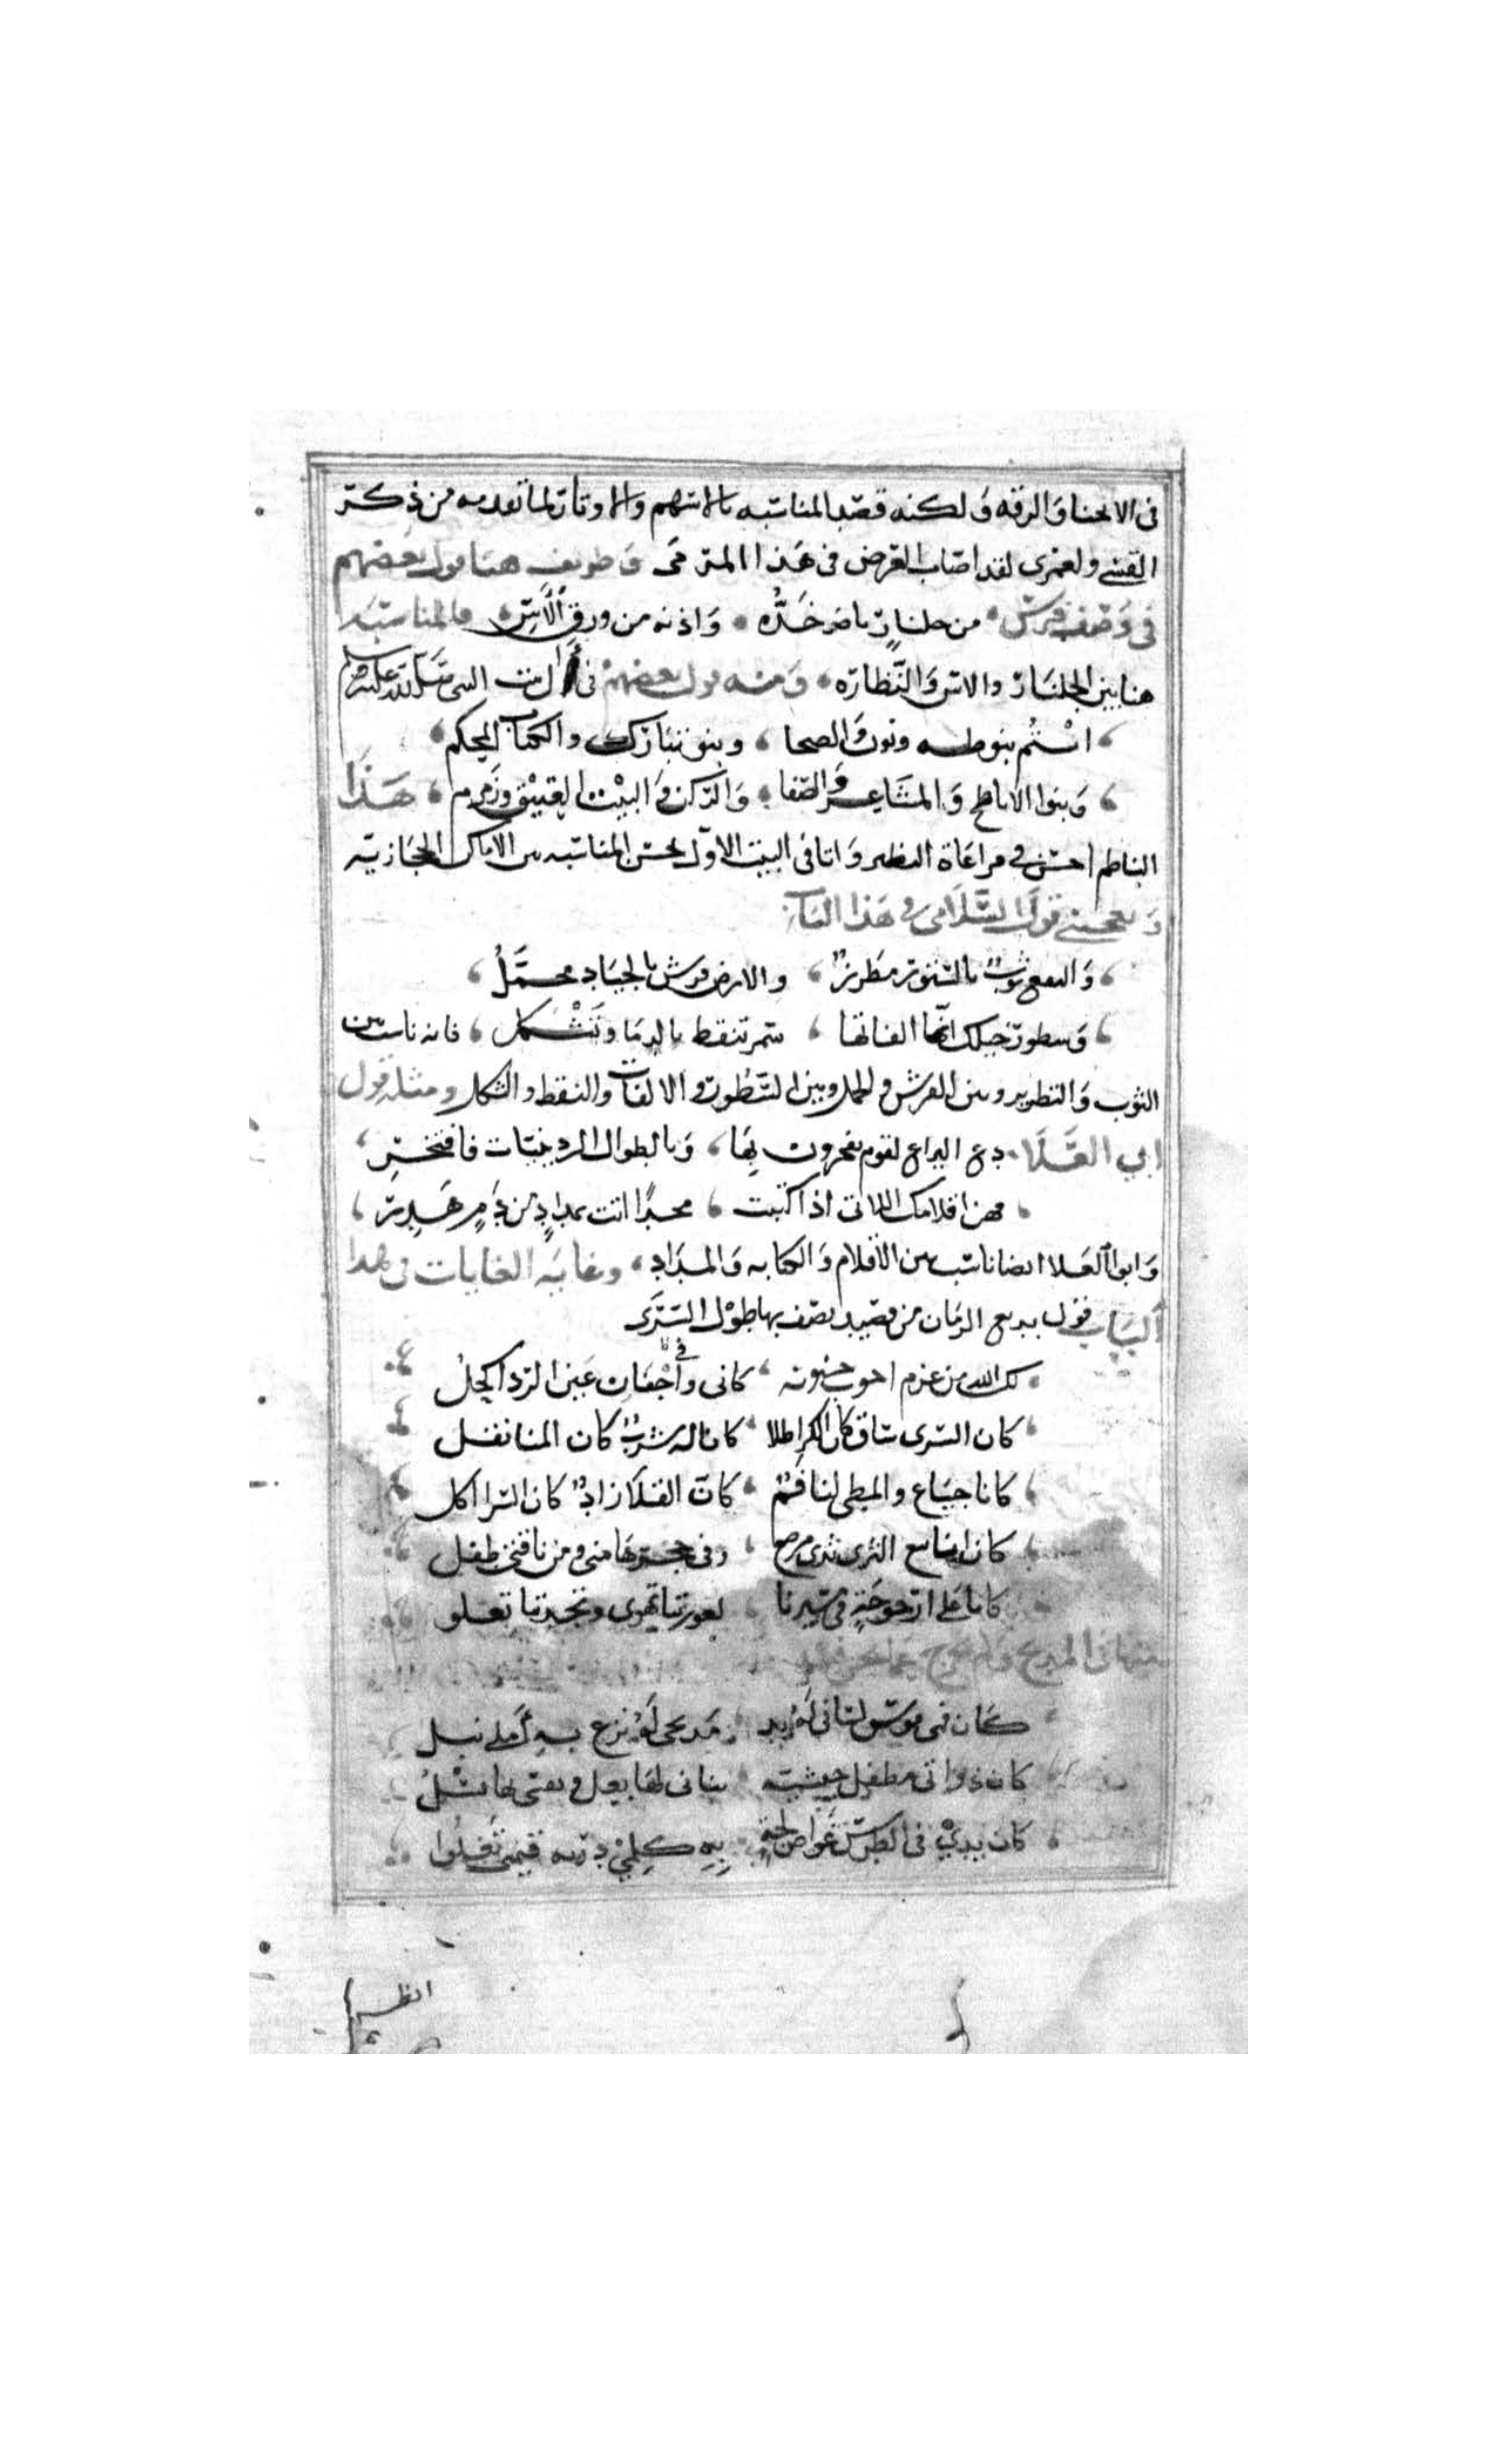 فى الانحنا والرقه ولكنه قصد المناسبه بالاسهم والاوتار لما تقدمه من ذكر
القسى ولعمرى لقد اصاب الغرض فى هذا المرمى وطريف هنا قول بعضهم
فى وصف فرس من جلنار ناضر خده واذنه من ورق الآس فالمناسبه
هنا بين الجلنار والاس والنضاره ومنه قول بعضهم فى آل بيت النبى صلى الله عليه وسلم
انتم بنو طه ونون والضحا وبنو تبارك والكتاب المحكم
وبنوا الاباطح والمشاعر والصفا والركن والبيت العتيق وزمزم هذا
الناظم احسن فى مراعاة النظير واتا فى البيت الاول بحسن المناسبه بين الاماكن الحجازيه
ويعجبنى قول السلامى فى هذا الباب
والنقع ثوب بالنسور مطرز والارض فرش بالجياد مخمل
وسطور خيلك انما الفاتها سمر تنقط بالدما وتشكل فانه ناسب بين
الثوب والتطريز وبين الفرش والخمل وبين السطور والالفات والنقط والشكل ومثله قول
ابى العلا دع اليراع لقوم يفخرون بها وبالطوال الردينيات فافتخر
فهن اقلامك اللاتى اذا كتبت مجدا اتت بمداد من دم هدر
وابو العلا ايضا ناسب بين الاقلام والكتابه والمداد وغاية الغايات فى هذا
الباب قول بديع الزمان من قصيد يصف بها طول السرى
لك الله من عزم اجوب جيوبه كانى فى اجفان عين الردا كحل
كان السرى ساق كان الكرا طلا كانا له شرب كان المنا نقل
كانا جياع والمطى لنا فم كان الفلا زاد كان السرا اكل
كان ينابيع الثرى ثدى مرضع وفى حجرها منى ومن ناقتى طفل
كانا على ارجوحة فى سيرنا لغور بنا تهوى ونجد بنا تعلو
منها فى المديح ولم يخرج عما نحن فيه
كان فمى قوس لسانى له يد مديحى له نزع به املى نبل
كان دواتى مطفل حبشية بنانى لها بعل ونقشى لها نسل
كان يدى فى الطرس غواص لجة به كلمى در به قيمتى تغلوا
انظر